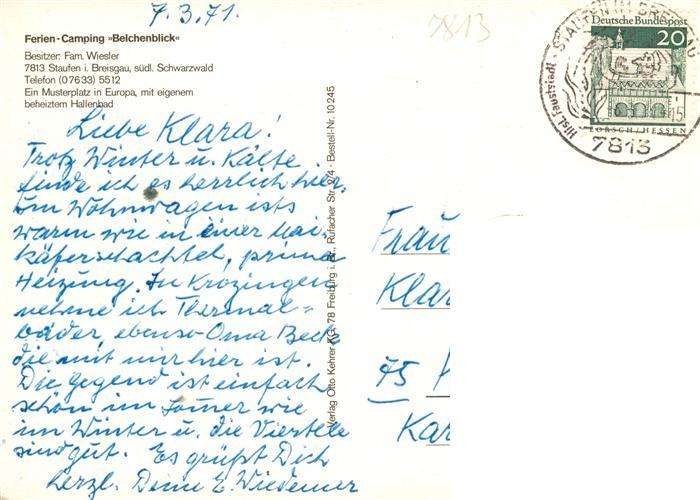 7.3.71.
7813
Ferien-Camping »Belchenblick«
Besitzer: Fam. Wiesler
7813 Staufen i. Breisgau, südl. Schwarzwald
Telefon (07633) 5512
Ein Musterplatz in Europa, mit eigenem
beheiztem Hallenbad
Liebe Klara!
Trotz Winter u. Kälte
finde ich es herrlich hier.
Im Wohnwagen ists
warm wie in einer Mai-
käferschachtel, prima
Heizung. In Krozingen
nehme ich Thermal-
bäder, ebenso Oma Beck
die mit mir hier ist.
Die Gegend ist einfach
schön im Somer wie
im Winter u. die Viertele
sind gut. Es grüßt Dich
herzl. Deine E. Wiedemer
Verlag Otto Kehrer KG, 78 Freiburg i. Br., Rufacher Str. 2/4 · Bestell-Nr. 10 245
STAUFEN IM BREISGAU
Hist. Fauststadt
7813
Deutsche Bundespost
20
LORSCH/HESSEN
Frau
Klar
75
Kar